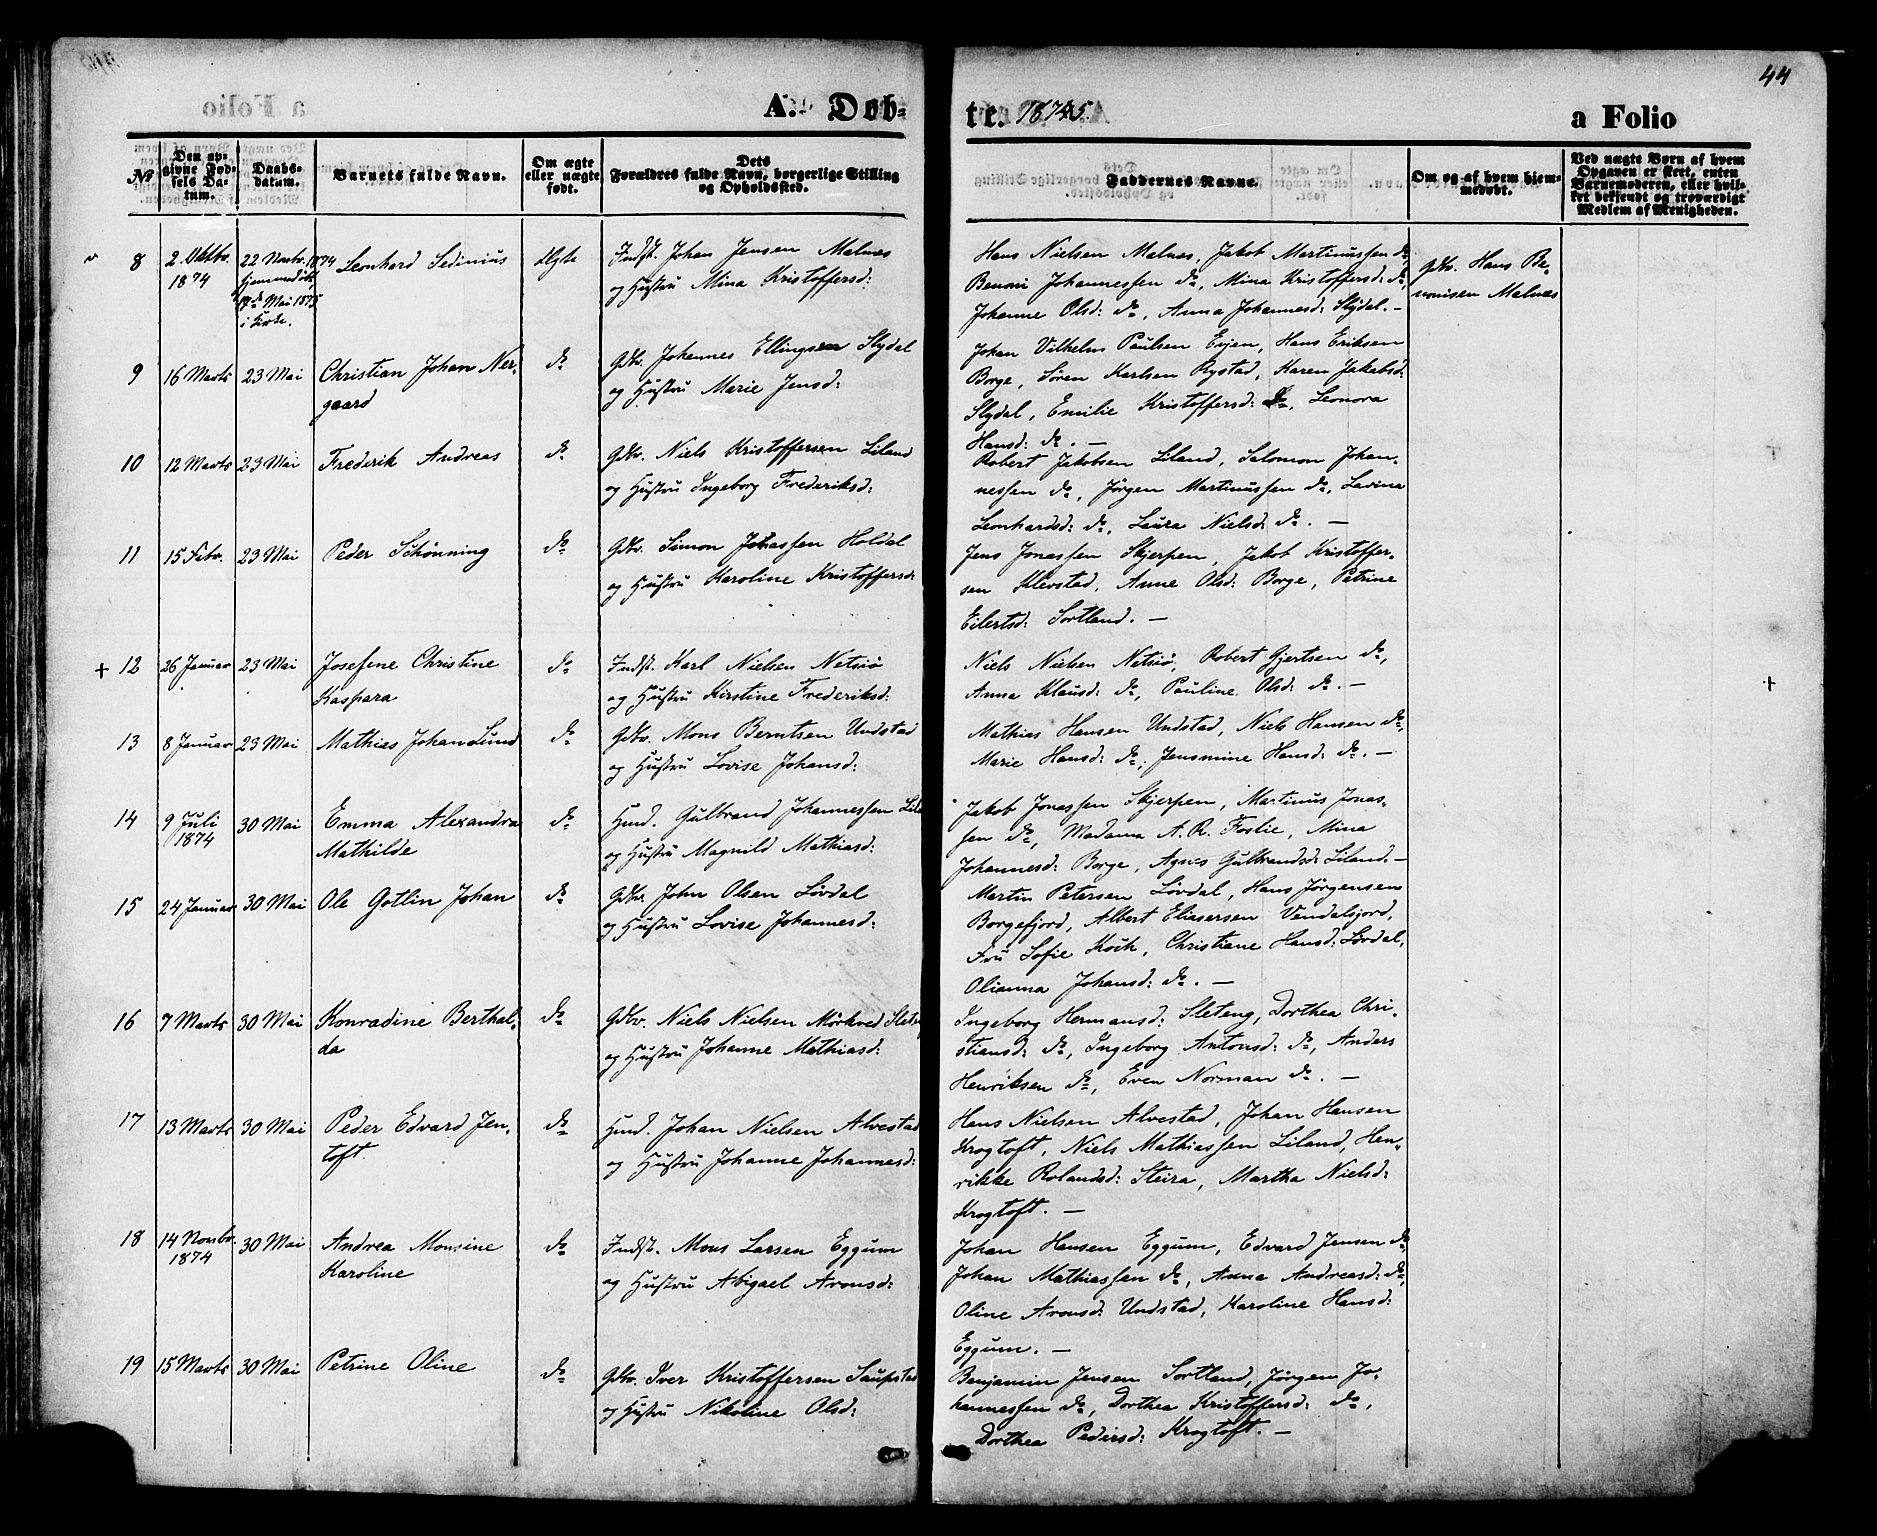 44
A. Døb-
te. 1875.
a Folio
No
Den op-
givne Fød-
sels Da-
tum.
Daabs-
datum.
Barnets fulde Navn.
Om ægte
eller uægte
født.
Dets
Forældres fulde Navn, borgerlige Stilling
og Opholdssted.
Faddernes Navne.
Om og af hvem hjem-
medøbt.
Ved uægte Børn af hvem
Opgaven er skeet, enten
Barnemoderen, eller hvil-
ket bekjendt og troværdigt
Medlem af Menigheden.
8
2. Oktbr.
1874
22 Novbr. 1874
hjemmedøbt,
Mai 1875
i Kirke.
Leonhard Sedinius
Ægte
Indst. Johan Jensen Malnes
og Hustru Mina Kristoffersd:
Hans Nielsen Malnes, Jakob Martinussen do,
Benoni Johannessen do, Mina Kristoffersd: do,
Johanne Olsd: do, Anna Johannesd: Slydal. —
Gdbr. Hans Be-
nonisen Malnes
9
16 Marts
23 Mai
Christian Johan Ner-
gaard
do
Gdbr. Johannes Ellingsen Slydal
og Hustru Marie Jensd:
Johan Vilhelm Paulsen Evjen, Hans Eriksen
Borge, Sören Karlsen Rystad, Karen Jakobsd:
Slydal, Emilie Kristoffersd: do, Leonora
Hansd: do. —
10
12 Marts
23 Mai
Frederik Andreas
do
Gdbr. Niels Kristoffersen Liland
og Hustru Ingeborg Frederiksd:
Robert Jakobsen Liland, Salomon Johan-
nessen do, Jörgen Martinussen do, Lavina
Leonhardsd: do, Laura Nielsd: do. —
11
15 Febr.
23 Mai
Peder Schönning
do
Gdbr. Simon Jonassen Holdal
og Hustru Karoline Kristoffersd:
Jens Jonassen Skjerpen, Jakob Kristoffer-
sen Klevstad, Anne Olsd: Borge, Petrine
Eilertsd: Sortland. —
+ 12
26 Januar
23 Mai
Josefine Christine
Kaspara
do
Indst. Karl Nielsen Netsiö
og Hustru Kirstine Frederiksd:
Niels Nielsen Netsiö, Robert Gjertsen do,
Anna Klausd: do, Pauline Olsd: do. —
+
13
8 Januar
23 Mai
Mathias Johan Lund
do
Gdbr. Mons Berntsen Undstad
og Hustru Lovise Johansd:
Mathias Hansen Undstad, Niels Hansen do,
Marie Hansd: do, Jensmine Hansd: do. —
14
9 Juli
1874
30 Mai
Emma Alexandra
Mathilde
do
Husd. Gulbrand Johannessen Lila
og Hustru Magnild Mathiasd:
Jakob Jonassen Skjerpen, Martinus Jonas-
sen do, Madama A. R. Foslie, Mina
Johannesd: Borge, Agnes Gulbrandsd: Liland. —
15
24 Januar
30 Mai
Ole Gotlin Johan
do
Gdbr. John Olsen Lövdal
og Hustru Lovise Johannesd:
Martin Petersen Lövdal, Hans Jörgensen
Borgefjord, Albert Eliasersen Vendalsjord,
Fru Sofie Koch, Christiane Hansd: Lövdal,
Olianna Johansd: do. —
16
7 Marts
30 Mai
Konradine Berthal-
da
do
Gdbr. Niels Nielsen Mörkved Slet
og Hustru Johanne Mathiasd:
Ingeborg Hermansd: Sleteng, Dorthea Chri-
stiansd: do, Ingeborg Antonsd: do, Anders
Henriksen do, Even Norman do. —
17
13 Marts
30 Mai
Peder Edvard Jen-
toft
do
Husd. Johan Nielsen Alvestad
og Hustru Johanne Johannesd:
Hans Nielsen Alvestad, Johan Hansen
Krogtoft, Niels Mathiassen Liland, Hen-
rikke Rolandsd: Steira, Martha Nielsd:
Krogtoft. —
18
14 Novbr.
1874
30 Mai
Andrea Monsine
Karoline
do
Indst. Mons Larsen Eggum
og Hustru Abigael Aronsd:
Johan Hansen Eggum, Edvard Jensen do,
Johan Mathiassen do, Anna Andreasd: do,
Oline Aronsd: Undstad, Karoline Hansd:
Eggum. —
19
15 Marts
30 Mai
Petrine Oline
do
Gdbr. Iver Kristoffersen Saupstad
og Hustru Nikoline Olsd:
Benjamin Jensen Sortland, Jörgen Jo-
hannessen do, Dorthea Kristoffersd: do,
Dorthea Pedersd: Krogtoft. —